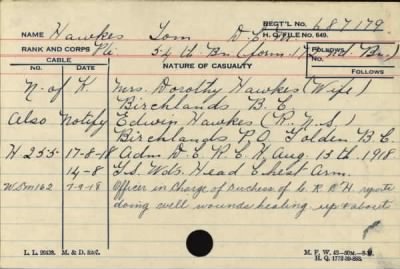 REG'T'L No. 687179
NAME Hawkes Tom D.C.M.
H. Q. FILE No. 649.
RANK AND CORPS Pte. 54th Bn (form. 172nd Bn.)
FOLLOWS No.
CABLE
NATURE OF CASUALTY
No. DATE
FOLLOWS
N. of K. Mrs. Dorothy Hawkes (Wife)
Birchlands B.C.
Also Notify Edwin Hawkes
Birchlands P.O. Golden B.C.
H 255 17-8-18 Adm D.E.R.E.H Aug. 15th 1918
14-8 G.S. Wds. Head Chest Arm.
162 7-9-18 Officer in Charge of Duchess of C R B H reports
doing well wounds healing up & about
L. L. 20438. M. & D.
M. F. W. 42
H. Q. 1772-39-893.